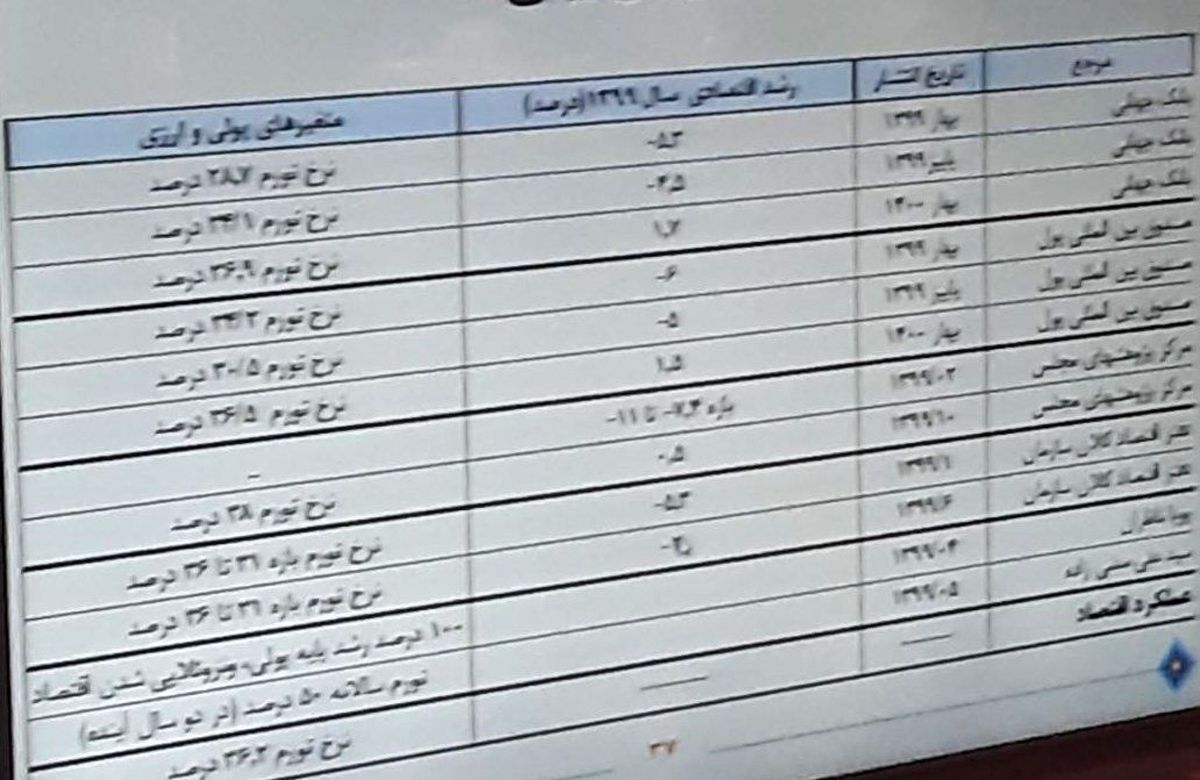 مرجع تاریخ انتشار رشد اقتصادی سال ۱۳۹۹(درصد) متغیرهای پولی و ارزی
بانک جهانی بهار ۱۳۹۹ -۵.۳ نرخ تورم ۲۸.۷ درصد
بانک جهانی پاییز ۱۳۹۹ -۴.۵ نرخ تورم ۳۴/۱ درصد
بانک جهانی بهار ۱۴۰۰ ۱.۷ نرخ تورم ۳۶.۹ درصد
صندوق بین المللی پول بهار ۱۳۹۹ -۶ نرخ تورم ۳۴/۲ درصد
صندوق بین المللی پول پاییز ۱۳۹۹ -۵ نرخ تورم ۳۰/۵ درصد
صندوق بین المللی پول بهار ۱۴۰۰ ۱.۵ نرخ تورم ۳۶/۵ درصد
مرکز پژوهشهای مجلس ۱۳۹۹/۰۲ بازه ۷.۴- تا ۱۱- –
مرکز پژوهشهای مجلس ۱۳۹۹/۱۰ ۰.۵ نرخ تورم ۳۸ درصد
دفتر اقتصاد کلان سازمان ۱۳۹۹/۱ -۵.۳ نرخ تورم بازه ۳۱ تا ۳۶ درصد
دفتر اقتصاد کلان سازمان ۱۳۹۹/۶ نرخ تورم بازه ۳۱ تا ۳۶ درصد
پویا ناظران ۱۳۹۹/۰۴ ۱۰۰ درصد رشد پایه پولی، ونزوئلایی شدن اقتصاد
سید علی مدنی زاده ۱۳۹۹/۰۵ تورم سالانه ۵۰ درصد (در دو سال آینده)
عملکرد اقتصاد نرخ تورم ۳۶.۲ درصد
۳۷